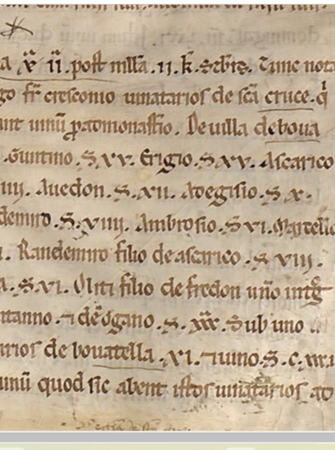 a x̃ ii. post mlła. ii. k̃. s̃cbr̃e. Tunc nota
go fr̃ cresconio uinatarios de sc̃a cruce. q̃
unt unũ p̱ admonast̃io. De uilla deboua
Guntino. S. xv. Erigio. S. xv. Ascarico
iiii. Auedon. S. xii. Adegisio S. x.
demiro. S. viiii. Ambrosio. S vi. Martelio
. Randemiro filio de ascarico. S. viii.
a. S. vi. Oliti filio de fredon uño intg̃
ntanno. ⁊ de õgano. S. xxx. Sub uno
arios de bouatella. xi. ⁊ uino. S. c.
unũ quod sic abent istos uinatarios ad